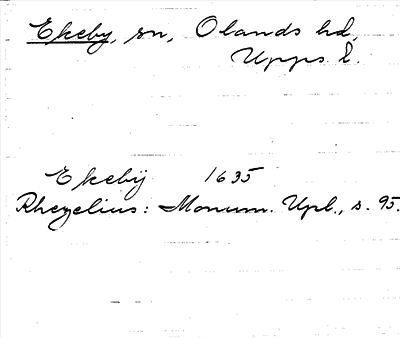 Ekeby, sn, Olands hd,
Upps. l.
Ekebÿ 1635
Rhezelius: Monum. Upl., s. 95.